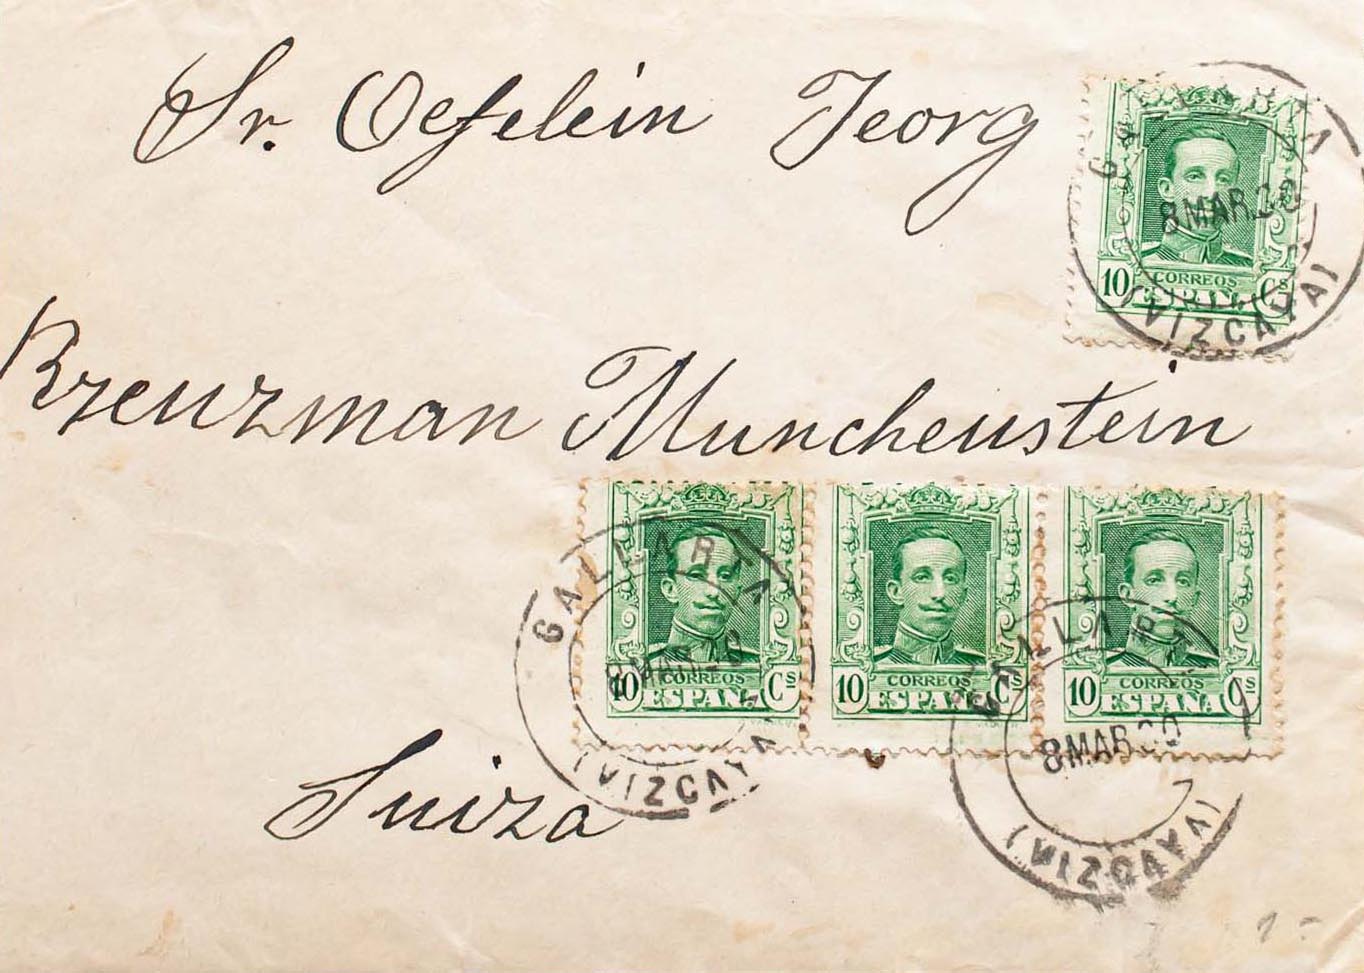 Sr. Oefelein Jeorg
GALLARTA
8 MAR. 30
(VIZCAYA)
10 CORREOS Cs
ESPAÑA
Brenzman Munchenstein
GALLARTA
8 MAR. 30
(VIZCAYA)
10 CORREOS Cs
ESPAÑA
10 CORREOS Cs
ESPAÑA
10 CORREOS Cs
ESPAÑA
GALLARTA
8 MAR 30
(VIZCAYA)
Suiza